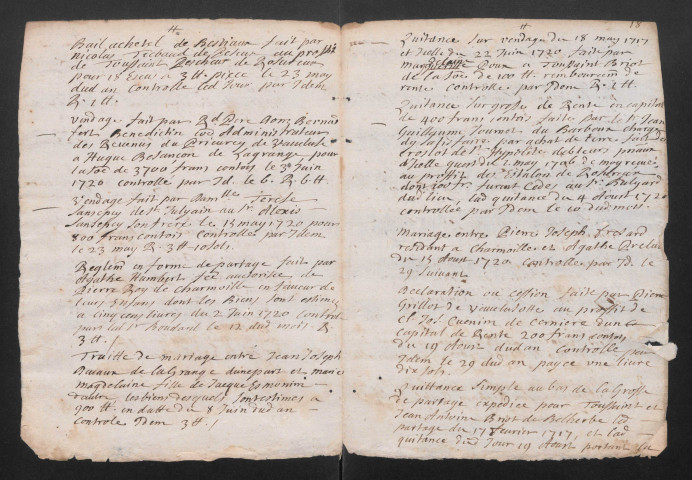 Bail achetel de Bestiaux fait par
nicolas
de Toussaint Pescheur de
pour 18 Ecus a 3 ℔ piece le 23 may
dud an controllé led Jour par Idem
R. 1 ℔.
vendage fait par Rd Pere Dom Bernard
fort Benedictin Administrateur
des Revenus du Prieurez de Vaucluse
a Hugue Besançon de Lagrange pour
la soe de 3700 frans contois le 3e Juin
1720 controllé par Id. le 6. R. 6 ℔
Vendage fait par Damlle Terese
Sansepy de St. au Sr. Alexis
Sansepy son frere le 15 may 1720 pour
800 frans contois controllés par Idem
le 23 may R. 3 ℔ 10 sols.
Reglemt en forme de partage fait par
Agathe Humbert authorisée de
Pierre Roy de Charmoille en faveur de
leurs Enfans dont les Biens sont estimés
a cinq cens livres du 2 Juin 1720 controllé
par led Sr. le 12 dud mois R.
3 ℔ /
Traitté de mariage entre Jean Joseph
de la Grange d'unepart et marie
magdelaine fille de Jacque
d'autre, les biens desquels sont estimés a
900 ℔. en datte du 8 Juin dud an
controllé Idem 3 ℔. /
18
Quitance sur vendage du 18 may 1717
et Icelle du 22 Juin 1720 fait par
Doux a Toussaint Briot
de la soe de 100 ℔. remboursemt de
rente controllé par Idem R. 1 ℔
Quitance sur grosse de Rente en capital
de 400 frans contois faite par le Sr. Jean
Guillaume Tournot du Barboux chargé
d'y satisfaire par achat de terre fait de
de St. Hypolite debteur
au proffit des de
dont 300 fr. furent cedés au Sr.
du lieu, lad quitance du 4 Aoust 1720
controllée par Idem le 10 dud mois.
Mariage entre Pierre Joseph
residant a Charmoille et Agathe
du 15 Aoust 1720 controllé par Id. le
29 suivant
Declaration ou cession faite par Pierre
Grillot de au proffit de
Cuenin de Cerniere d'un
capital de Rente 200 frans contois
du 19 Aoust dud an Controllé par
Idem le 29 dud an payé une livre
dix sols.
Quittance simple au bas de la Grosse
de partage expediée pour Toussaint et
Jean Antoine Briot de Belherbe led
partage du 17 fevrier 1717, et lad
quitance dud Jour 19 Aoust portant